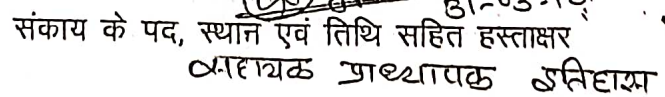 31-03-
संकाय के पद, स्थान एवं तिथि सहित हस्ताक्षर
सहायक प्राध्यापक इतिहास